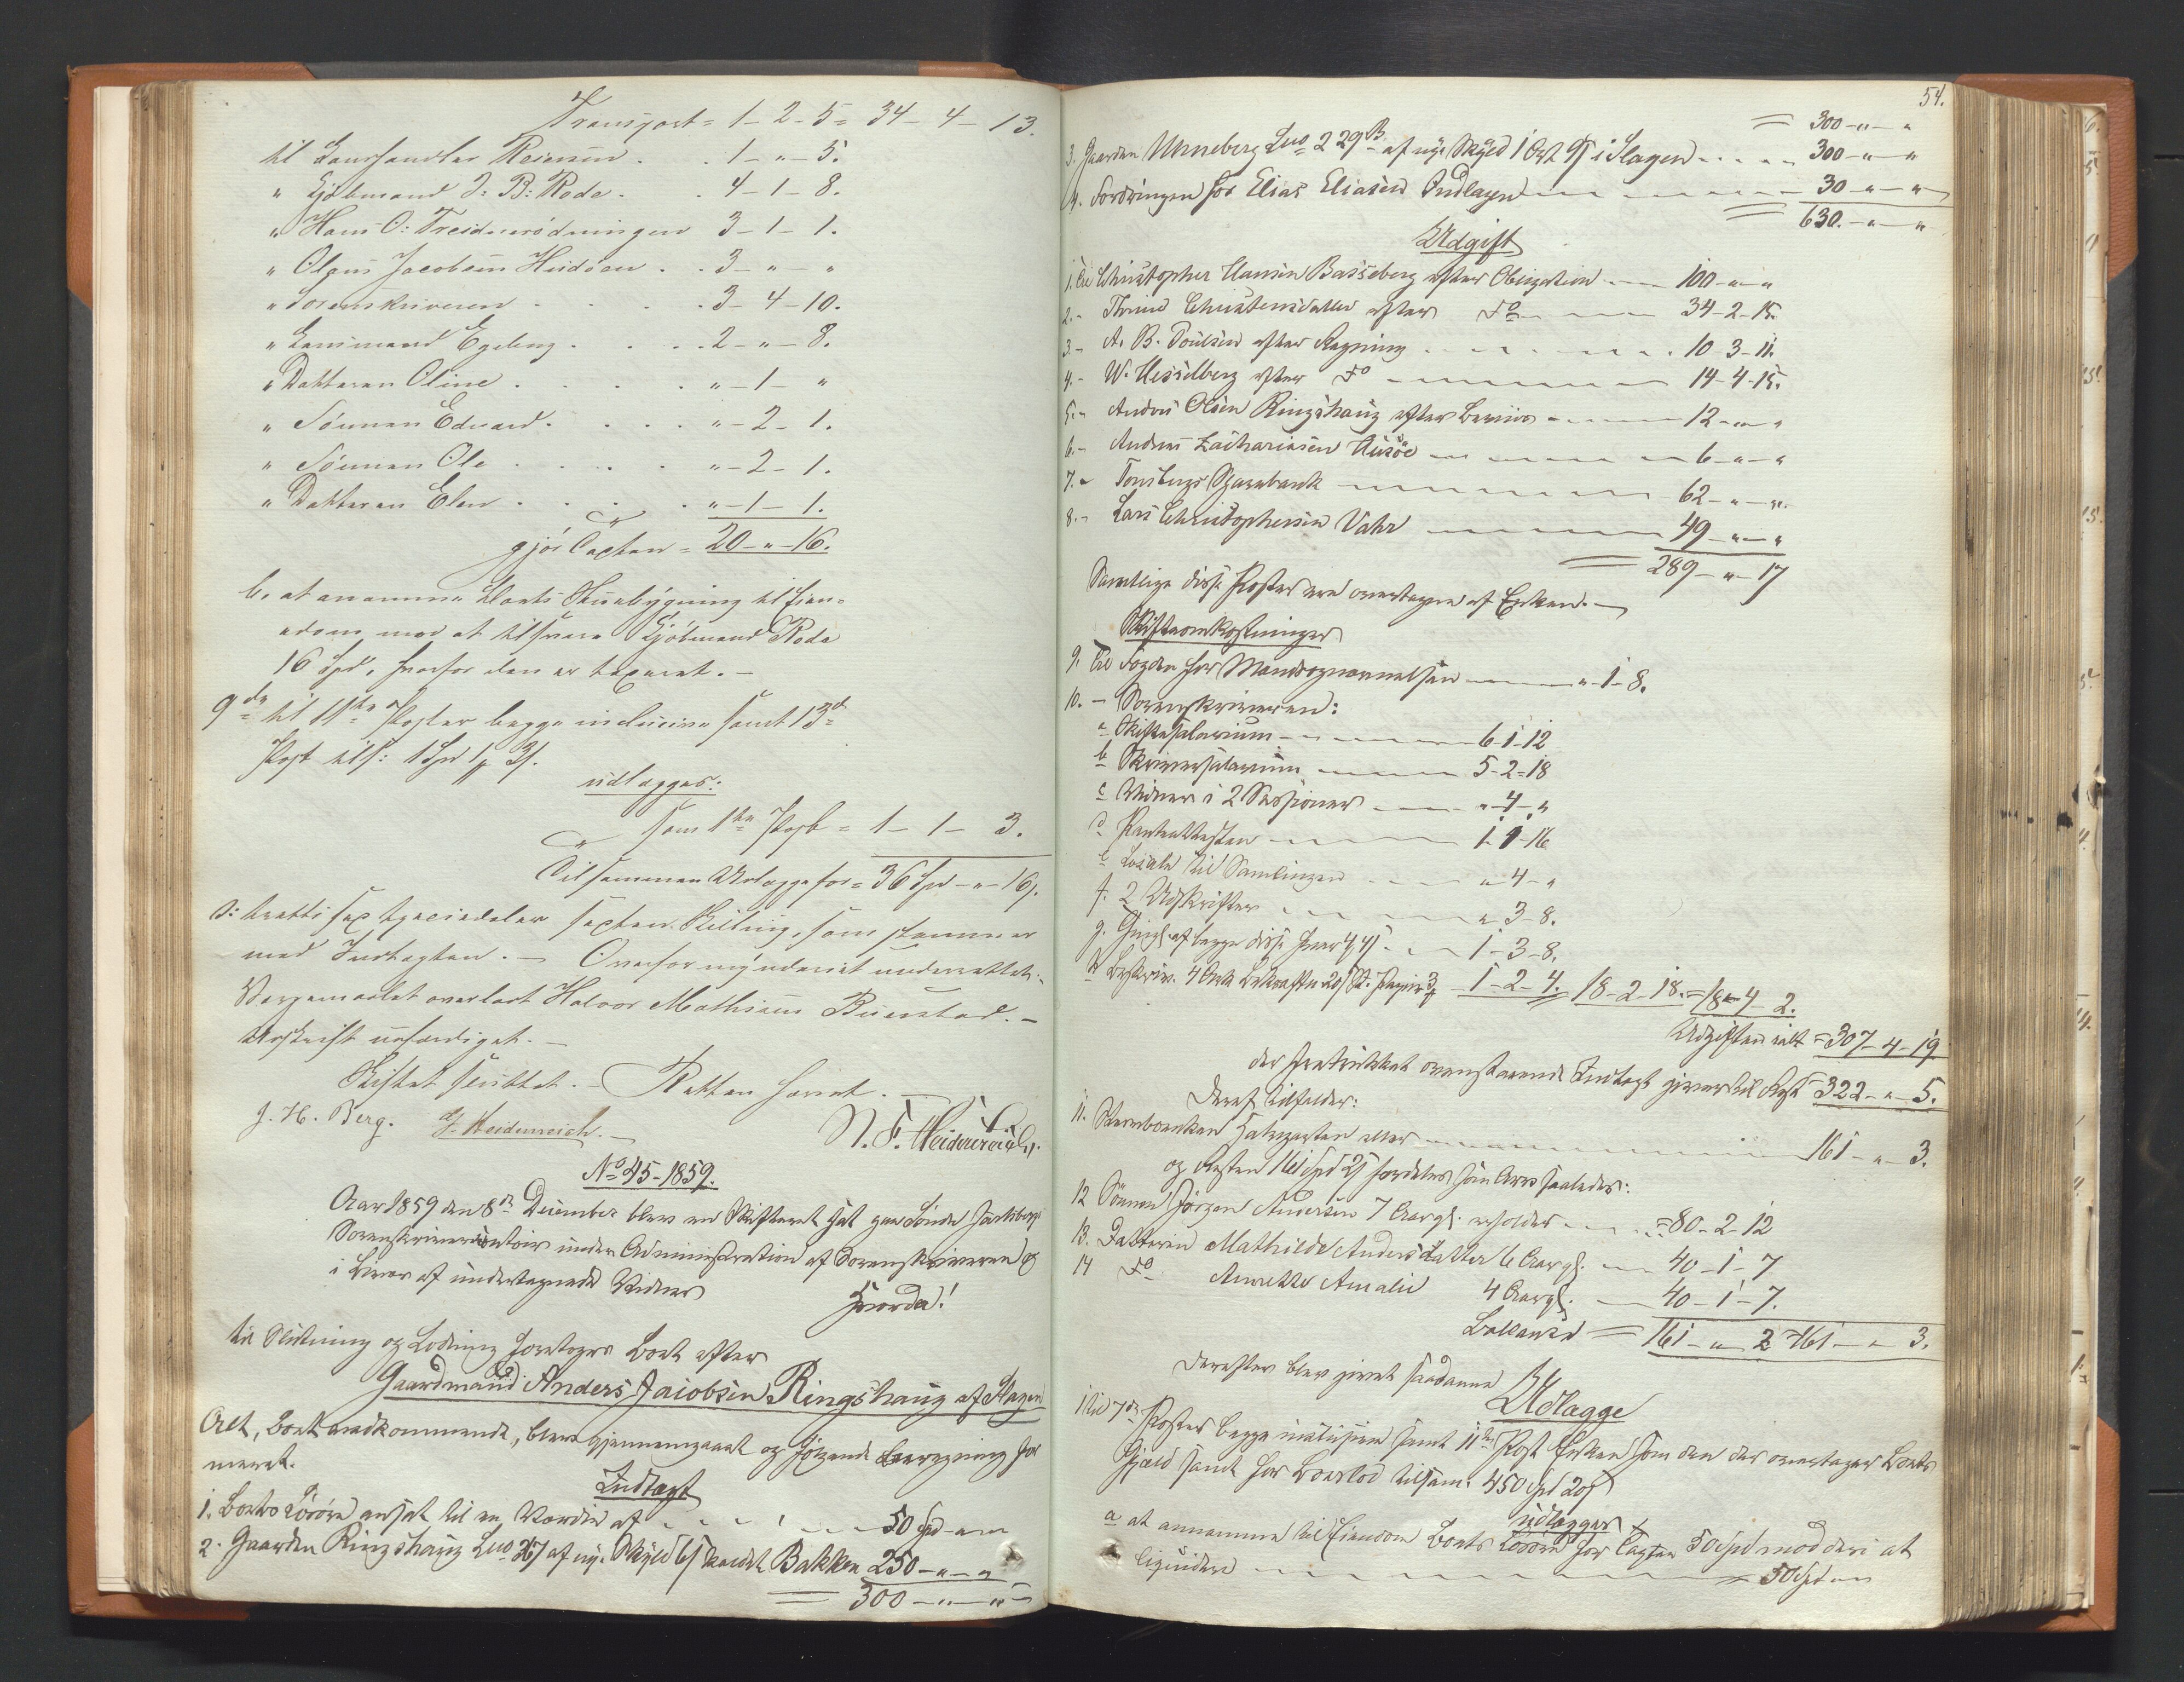 Transport = 1 - 2 - 5 = 34 - 4 - 13.
til Landhandler Reiersen . . 1 - " - 5.
" Kjøbmand J: B: Rode . . 4 - 1 - 8.
" Hans O: Treidenerødningen 3 - 1 - 1.
" Olaus Jacobsen Hudøen . . 3 - " - "
" Sorenskriveren . . . . 3 - 4 - 10.
" Lensmand Egeberg . . . 2 - " - 8.
" Datteren Oline . . . . " - 1 - "
" Sønnen Eduard . . . . " - 2 - 1.
" Sønnen Ole . . . . " - 2 - 1.
" Datteren Elen . . . . " - 1 - 1.
gjør Taxten = 20 - " - 16.
b, at anamme Boets Huusbygning til Eien=
edom mod at tilsvare Kjøbmand Rode
16 Spd, hvorfor den er taxeret. -
9de til 11te Poster begge inclusive samt 13d
Post tils: 1 Spd 1 3 s.
udlægges:
som 1te Post = 1 - 1 - 3.
Tilsammen Udlæggefor = 36 Spd - " - 16 s.
3: tretti sex speciedaler sexten Skilling, som stemmer
med Indtægten. - Overformynderiet underrettet. -
Værgemaalet overladt Halvor Mathisen Buerstad. -
Udskrift udfærdiget. -
Skiftet sluttet. - Retten hævet. -
J. H. Berg. J. Heidenreich. - N. F. Heidenreich.
No 45 - 1859.
Aar 1859 den 8de December blev en Skifteret sat paa Søndre Jarlsbergs
Sorenskrivercontoir under Administration af Sorenskriveren og
i Overvær af undertegnede Vidner
Hvorda!
til Slutning og Lodning foretoges Boet efter
Gaardmand Anders Jacobsen Ringshaug af Slagen
Alt, Boet vedkommende, blev gjennemgaaet og følgende Beregning for
meret.
Indtægt
1. Boets Løsøre ansat til en Værdie af . . . . 50 Spd - " - "
2. Gaarden Ringshaug Lno 267 af nye Skyld 6 s kaldet Bakken 250 - " - "
300 - " - "
54.
300 - " - "
3. Gaarden Unneberg Lno 229 B af nye Skyld 1 Ort 9 s i Slagen . . . . 300 - " - "
4. Fordringen hos Elias Eliasen Indlagen . . . . 30 - " - "
630. - " - "
Udgift
1. til Christopher Hansen Basseberg efter Obligation . . . 100 - " - "
2. - Trine Christensdatter efter Do . . . 34 - 2 - 15.
3 - A. B. Poulsen efter Regning . . . . 10 - 3 - 11.
4. - W. Hesselberg efter Do . . . . 14 - 4 - 15.
5. - Anders Olsen Ringshaug efter Beviis . . . 12 - " - "
6. - Andreas Zachariasen Husøe . . . . 6 - " - "
7. - Tønsbergs Sparebank . . . . 62 - " - "
8. - Lars Christophersen Vahr . . . . 49 - " - "
289 - " - 17
Samtlige disse Poster ere overtagne af Enken. -
Skifteomkostninger
9. til Fogden for Mandsopnævnelsen . . . " - 1 - 8.
10. - Sorenskriveren:
a Skiftesalarium . . . 6 - 1 - 12
b Skriversalarium . . . 5 - 2 - 18
c Vidner i 2 Sessioner . . . " - 4 - "
d Panteattester . . . 1 - 1 - 16
e Locale til Samlinger . . . " - 4 - "
f. 2 Udskrifter . . . " - 3 - 8.
g. Gjenp. af begge disse hver 4, 4 s . . 1 - 3 - 8.
h Beskriv. 4 Ark Bekræftn 20 s St. Papir 3 1 - 2 - 4. 18 - 2 - 18. = 18 - 4 - 2.
Udgiften ialt = 307 - 4 - 19
der fratrukket ovenstaaende Indtægt giver til Rest 322 - " - 5.
Deraf tilfalder:
11. Sterboenken Halvparten eller . . . . 161 - " - 3.
og Resten 161 Spd 2 s fordeles som Arv saaledes:
12 Sønnen Jørgen Andersen 7 Aar gl. erholder . . . = 80 - 2 - 12
13. Datteren Mathilde Andersdatter 6 Aar gl. . . 40 - 1 - 7
14 Do Annette Amalie 4 Aar gl. . . 40 - 1 - 7.
Ballance = 161 - " - 2 = 161 - " - 3.
Derefter blev givet saadanne
Udlægge
1 til 7de Poster begge inclusive samt 11te Post Enken som den der overtager Boets
Gjæld samt for Boeslod tilsam. 450 Spd 20 s
udlægges
a at annamme til Eiendom Boets Løsøre for Taxten 50 Spd mod deri at
liqvidere . . . . 50 Spd " "